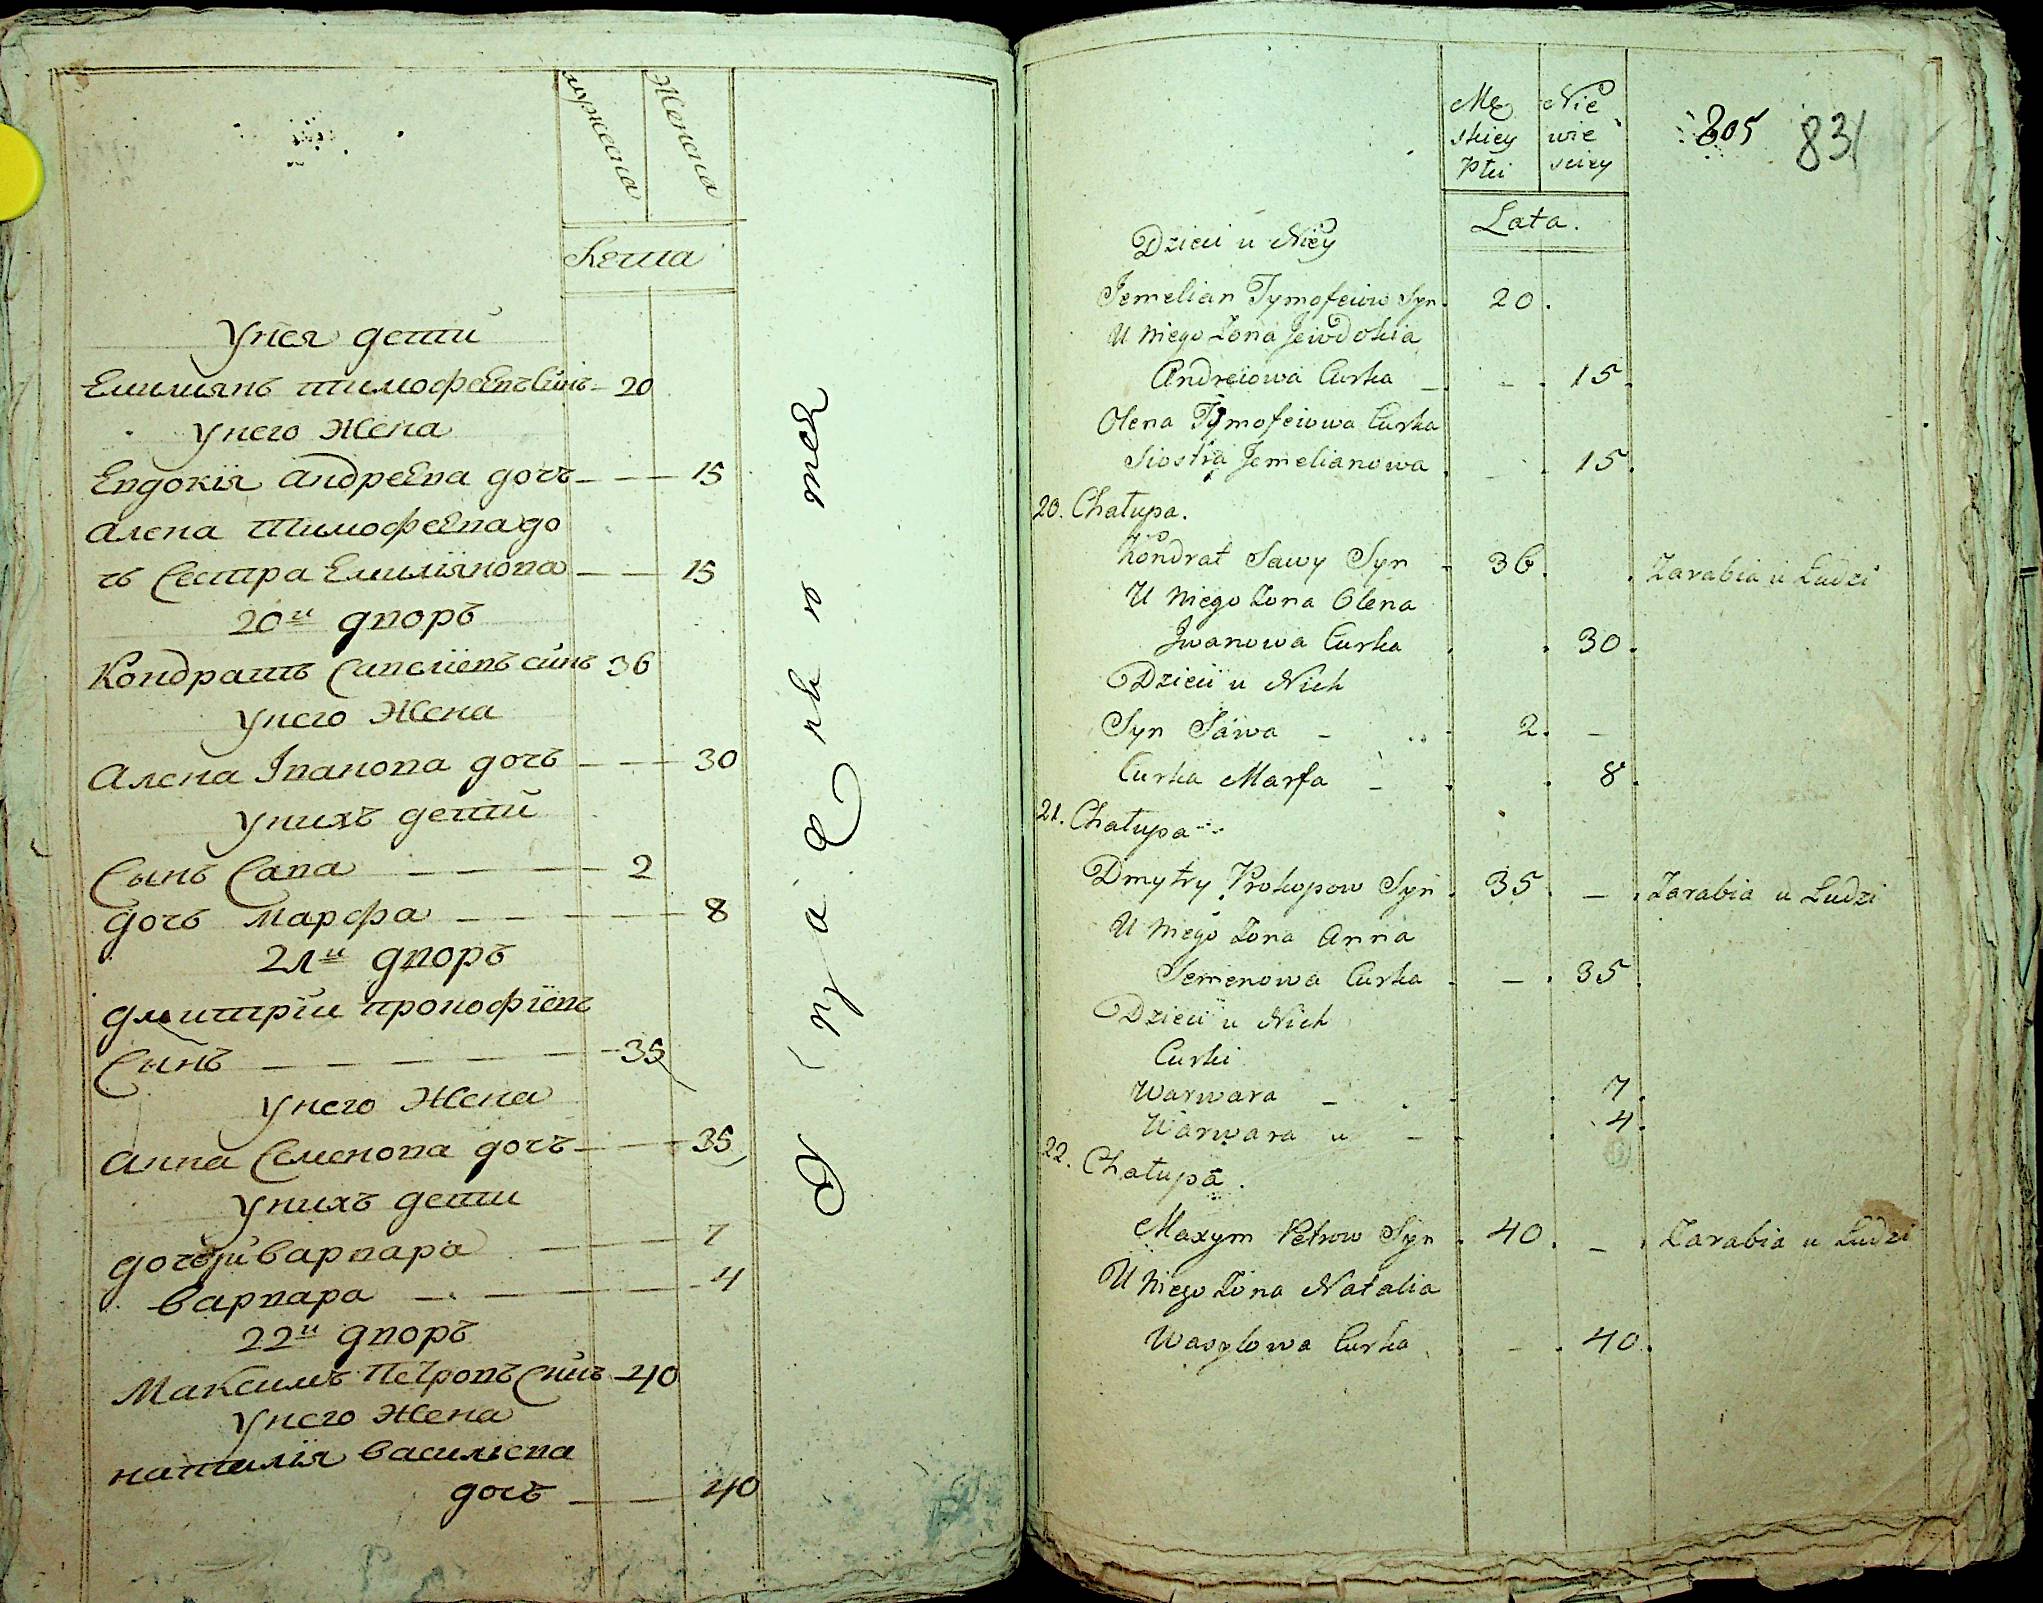 мужеска
Женска
Лета
У нея дети
Емилиянъ тимофеевъ синъ 20
У него Жена
Евдокія андреева дочъ 15
алена тимофеева до
чъ Сестра Емиліянова 15
20й дворъ
Кондратъ Савеліевъ синъ 36
У него Жена
Алена Іванова дочъ 30
У нихъ дети
Сынъ Сава 2
дочъ Марфа 8
21й дворъ
дмитрій прокофіевъ
Сынъ 35
У него Жена
анна Семенова дочъ 35
У нихъ дети
дочери варвара 7
варвара 4
22й дворъ
Максимъ Петровъ Синъ 40
У него Жена
наталія васильева
дочъ 40
Mę Nie
skiey wie
Płci sciey
805 831
Lata.
Dzieci u Niey
Jemelian Tymofeiow Syn. 20.
U niego Żona Jewdokia
Andreiowa Curka 15.
Olena Tymofeiowa Curka
Siostra Jemelianowa 15.
20. Chałupa.
Kondrat Sawy Syn 36. Zarabia u Ludzi
U niego Żona Olena
Jwanowa Curka 30.
Dzieci u Nich
Syn Sawa 2.
Curka Marfa 8.
21. Chałupa
Dmytry Prokopow Syn 35. Zarabia u Ludzi
U niego Żona Anna
Semenowa Curka 35.
Dzieci u Nich
Curki
Warwara 7.
Warwara 4.
22. Chałupa.
Maxym Petrow Syn 40. Zarabia u Ludzi
U niego Żona Natalia
Wasylowa Curka 40.